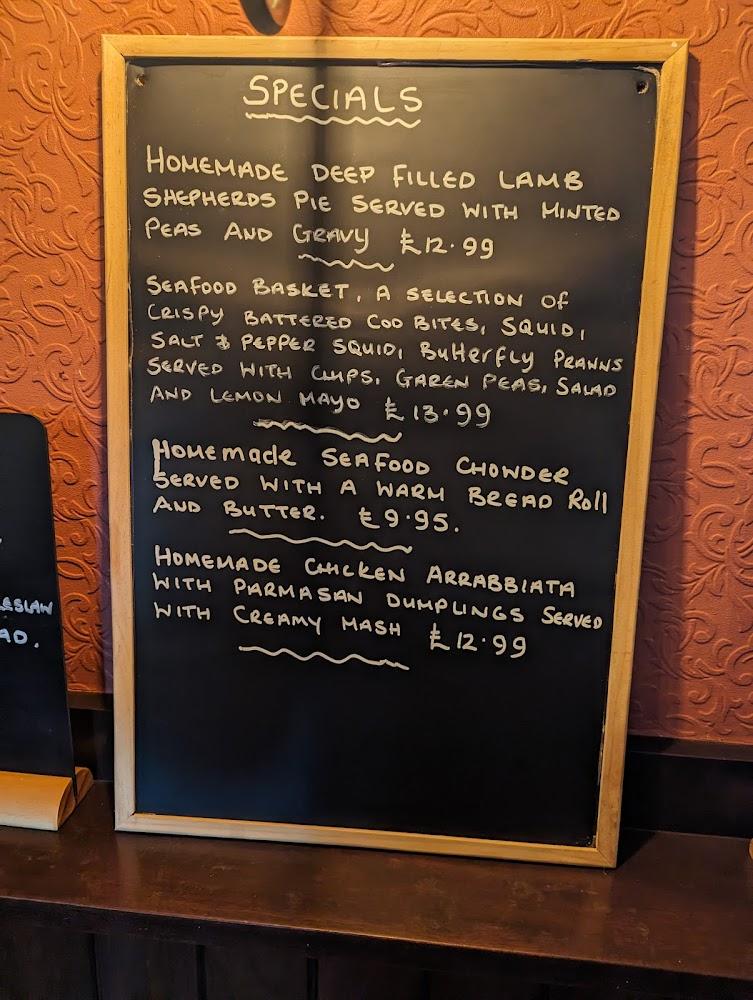 SPECIALS
HOMEMADE DEEP FILLED LAMB
SHEPHERDS PIE SERVED WITH MINTED
PEAS AND GRAVY £12.99
SEAFOOD BASKET, A SELECTION OF
CRISPY BATTERED COD BITES, SQUID,
SALT & PEPPER SQUID, BUTTERFLY PRAWNS
SERVED WITH CHIPS, GAREN PEAS, SALAD
AND LEMON MAYO £13.99
HOMEMADE SEAFOOD CHOWDER
SERVED WITH A WARM BREAD ROLL
AND BUTTER. £9.95.
HOMEMADE CHICKEN ARRABBIATA
WITH PARMASAN DUMPLINGS SERVED
WITH CREAMY MASH £12.99